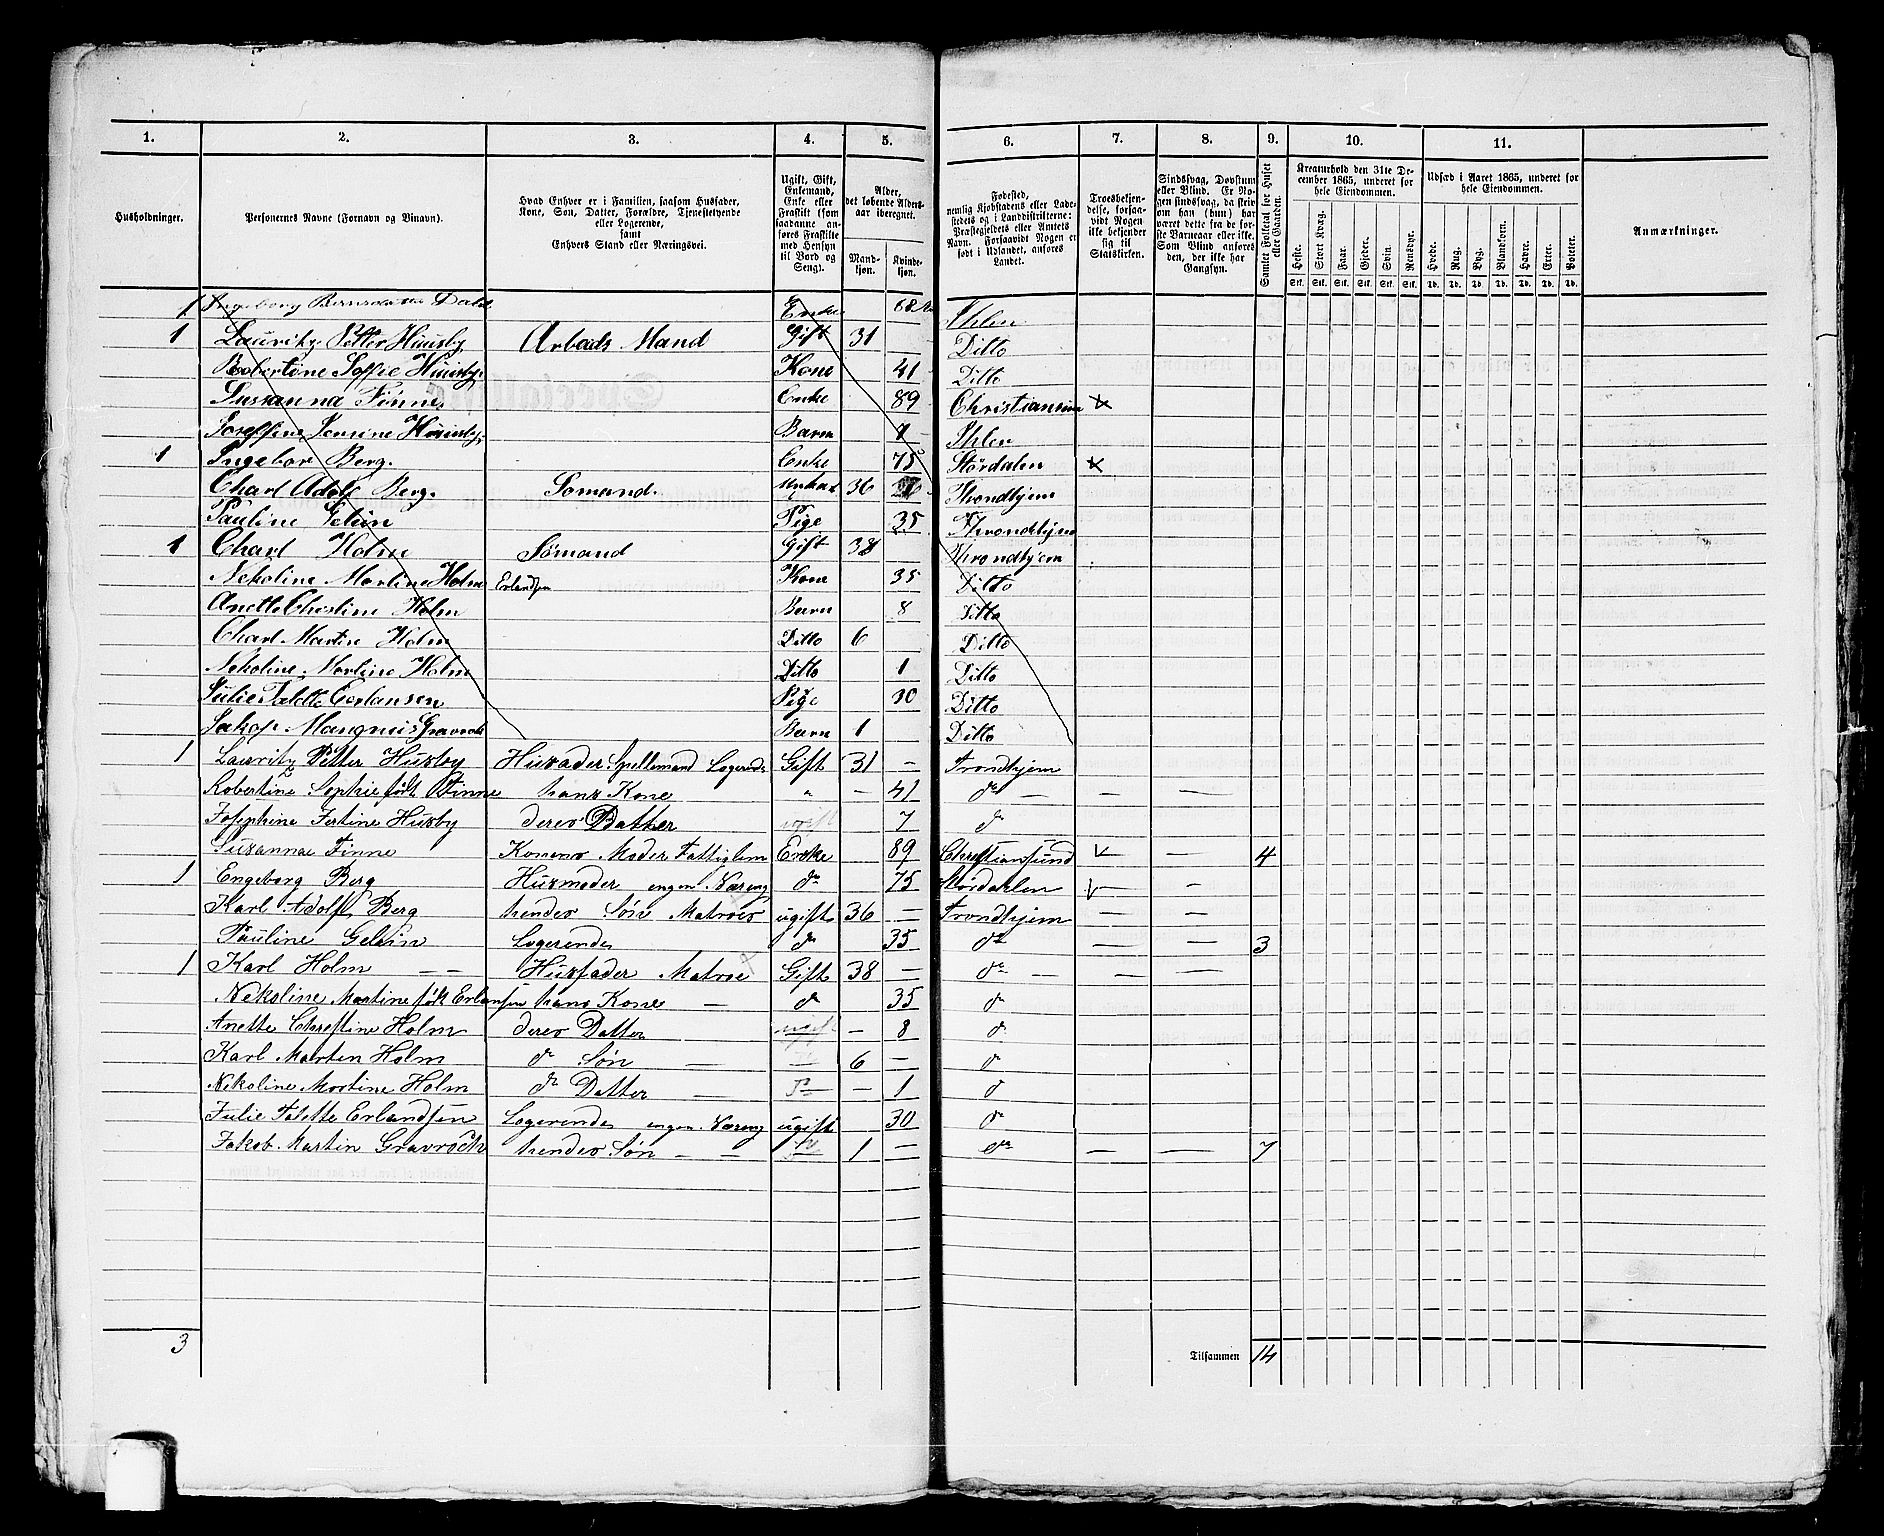 1. 2. 3. 4. 5. 6. 7. 8. 9. 10. 11.
Husholdninger.
Personernes Navne (Fornavn og Binavn).
Hvad Enhver er i Familien, saasom Husfader, Kone, Søn, Datter, Forældre, Tjenestetyende eller Logerende, samt Enhvers Stand eller Næringsvei.
Ugift, Gift, Enkemand, Enke eller Fraskilt (som saadanne anføres Fraskilte med Hensyn til Bord og Seng).
Alder, det løbende Aldersaar iberegnet.
Mandkjøn. Kvindekjøn.
Fødested, nemlig Kjøbstadens eller Ladestedets og i Landdistrikterne: Præstegjeldets eller Amtets Navn. Forsaavidt Nogen er født i Udlandet, anføres Landet.
Troesbekjendelse, forsaavidt Nogen ikke bekjender sig til Statskirken.
Sindssvag, Døvstum eller Blind. Er Nogen sindssvag, da skrives om han (hun) har været dette fra de første Barneaar eller ikke. Som Blind anføres den, der ikke har Gangsyn.
Samlet Folketal for Huset eller Gaarden.
Kreaturhold den 31te December 1865, underet for hele Eiendommen.
Heste. Stort Kvæg. Faar. Gjeder. Svin. Rensdyr.
Stk. Stk. Stk. Stk. Stk. Stk.
Udsæd i Aaret 1865, underet for hele Eiendommen.
Hvede. Rug. Byg. Blandkorn. Havre. Erter. Poteter.
Td. Td. Td. Td. Td. Td. Td.
Anmærkninger.
1 Ingeborg Dahl Enke 68 Ihlen
1 Lauritz Petter Huusby Arbeids Mand Gift 31 Ditto
Robertine Soffie Huusby Kone 41 Ditto
Sussanna Finne Enke 89 Christiansun
Joseffine Jensine Huusby Barn 7 Ihlen
1 Ingebor Berg. Enke 75 Stördalen
Charl Adolf Berg. Sømand. Unkar 36 Trondhjem
Pauline Gelein Pige 35 Throndhjem
1 Charl Holm Sømand Gift 38 Throndhjem
Nekoline Martine Holm Erlandsen Kone 35 Ditto
Anette Christine Holm Barn 8 Ditto
Charl Martin Holm Ditto 6 Ditto
Nekoline Martine Holm Ditto 1 Ditto
Julie Talette Eerlansen Pige 30 Ditto
Jakop Mangnus Gravrok Barn 1 Ditto
1 Lauritz Petter Husby Husfader Spellemand Logerende Gift 31 — Trondhjem
Robertine Sophie født Finne hans Kone " — 41 do — — —
Josephine Jertine Husby deres Datter ugift 7 do
Susannae Finne Konens Moder Fattiglem Encke 89 Christiansund — — 4
1 Engeborg Berg Husmoder engen Næreng do 75 Stördarlen — —
Karl Adolf Berg hendes Søn Matroes ugift 36 — Trondhjem — —
Pauline Gelein Logerende do 35 do — — 3
1 Karl Holm — — Husfader Matroe Gift 38 — do — — —
Nekoline Martine født Erlansen hans Kone — do 35 do
Anette Chrestine Holm deres Datter ugift — 8 do
Karl Marten Holm do Søn — — 6 — do
Nekoline Martine Holm do Datter — — 1 do
Julie Talette Erlandsen Logerende engen Næreng ugift 30 do
Jakob Martin Gravrock hendes Søn — — 1 — do — — 7
3 Tilsammen 14